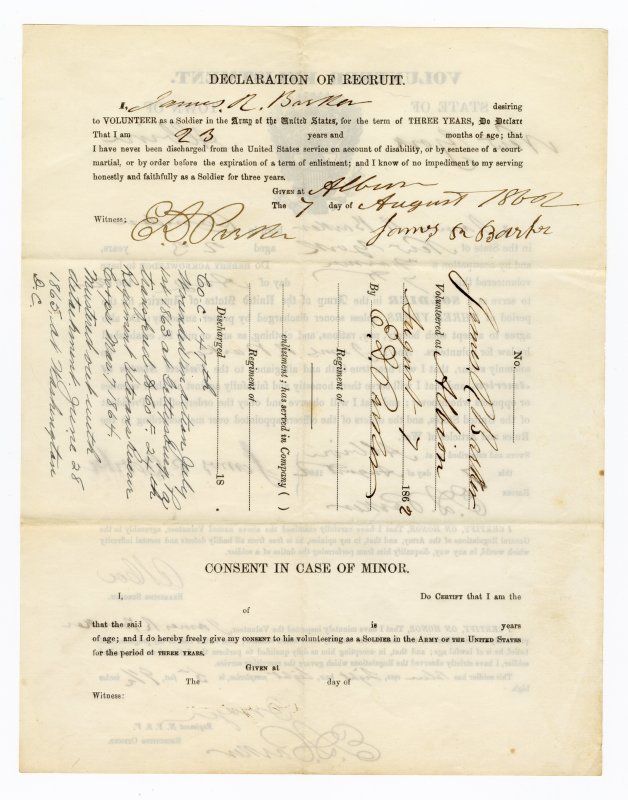 DECLARATION OF RECRUIT.
I, James R. Barker desiring
to VOLUNTEER as a Soldier in the Army of the United States, for the term of THREE YEARS, Do Declare
That I am 23 years and months of age; that
I have never been discharged from the United States service on account of disability, or by sentence of a court-
martial, or by order before the expiration of a term of enlistment; and I know of no impediment to my serving
honestly and faithfully as a Soldier for three years.
Given at Albion
The 7 day of August 1862
Witness:
E. D. Parker James R Barker
No.
James R. Barker
Volunteered at Albion
August 7 1862
By E. D. Parker
Regiment of
enlistment; has served in Company ( )
Regiment of
Discharged 18
Co C 147th
Wounded in action July
1st 1863 at Gettysburg Pa
Transferred to Co I 24th
Regiment Veteran Reserve
Corps May 1864.
Mustered out with
detachment June 28
1865, at Washington
D.C.
CONSENT IN CASE OF MINOR.
I, Do Certify that I am the
of
that the said is years
of age; and I do hereby freely give my consent to his volunteering as a Soldier in the Army of the United States
for the period of three years.
Given at
The day of
Witness: